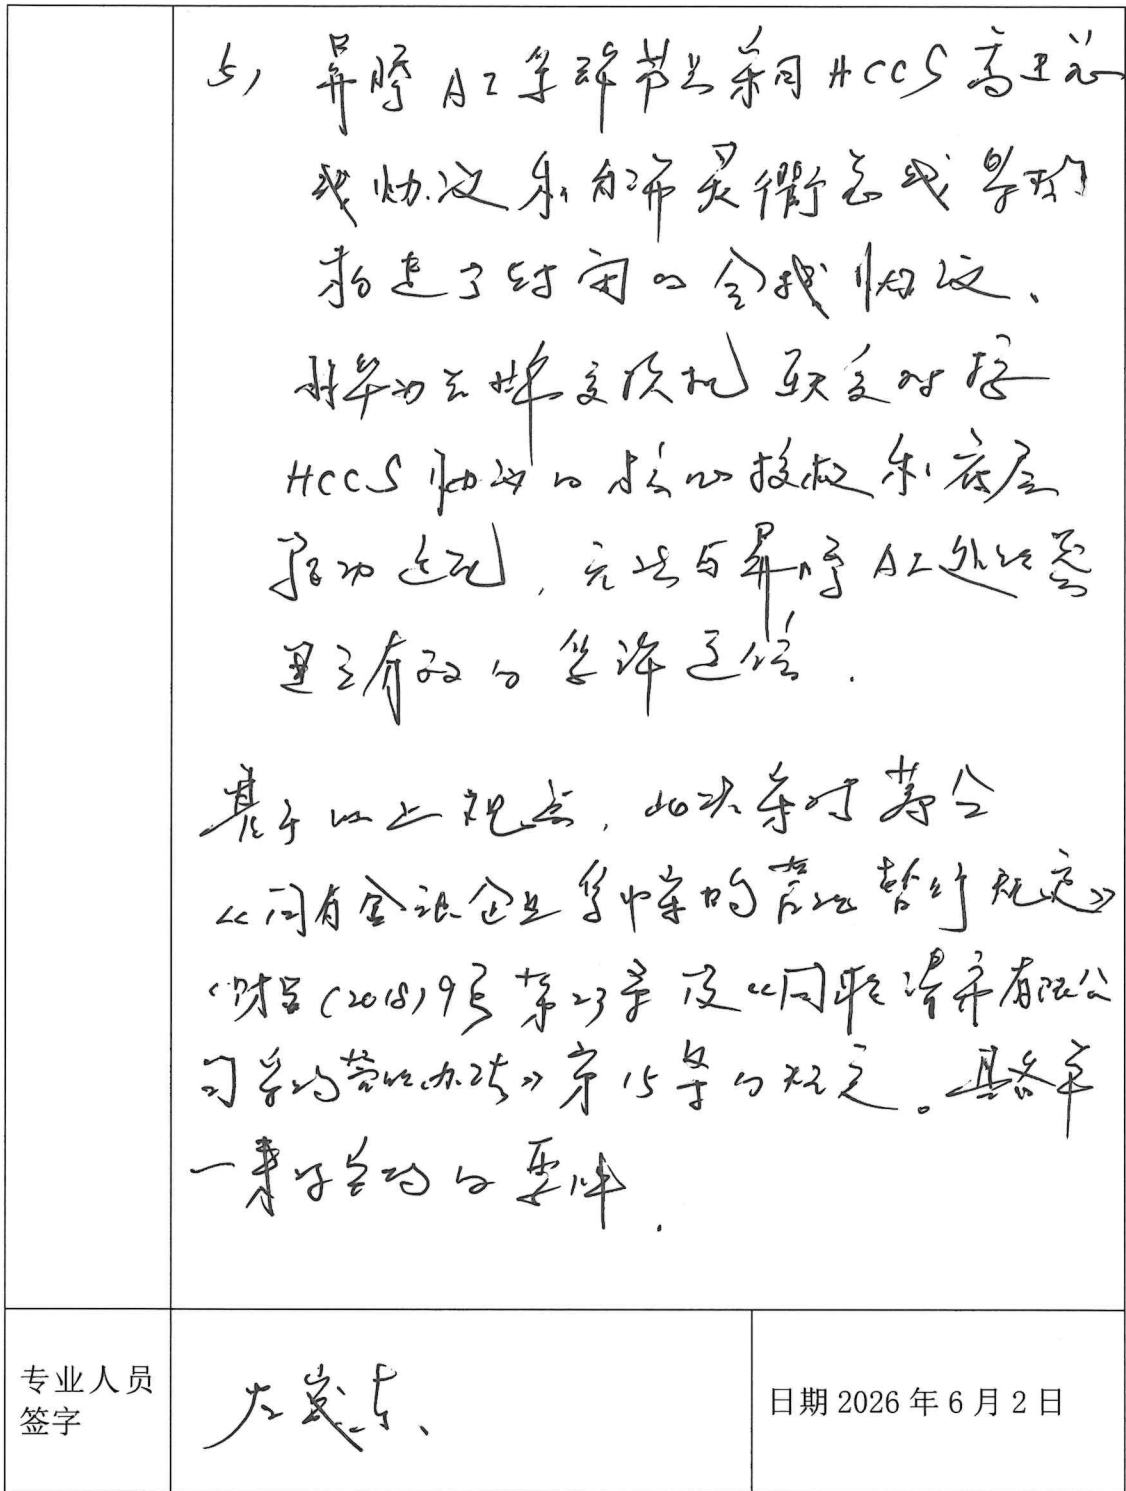 5) 昇腾AI集群节点采用HCCS高速总
线协议和自研灵衢总线架构
构建了封闭的全栈协议、
非华为云牌交换机缺乏对接
HCCS协议的核心授权和底层
驱动适配,无法与昇腾AI处理器
建立有效的集群通信.
基于以上观点,此次采购符合
《国有金融企业集中采购管理暂行规定》
(财金(2018)9号第23条及《国联证券有限公
司采购管理办法》第15条的规定。具备单
一来源采购的要件.
专业人员
签字
日期2026年6月2日